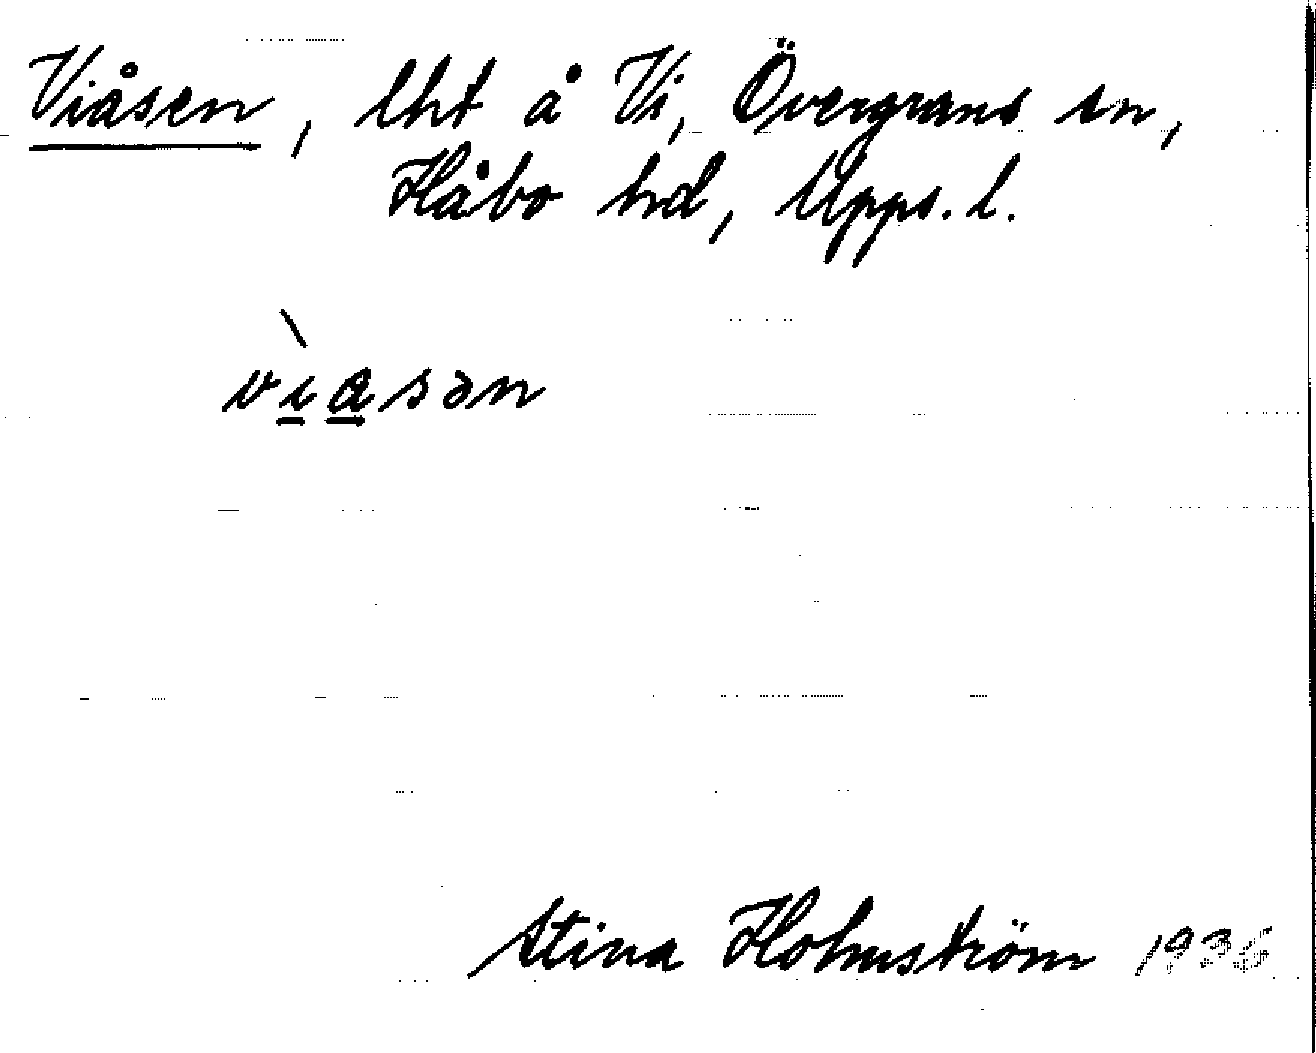 Viåsen, lht å Vi, Övergrans sn,
Håbo hd, Upps. l.
vìasən
Stina Holmström 1936